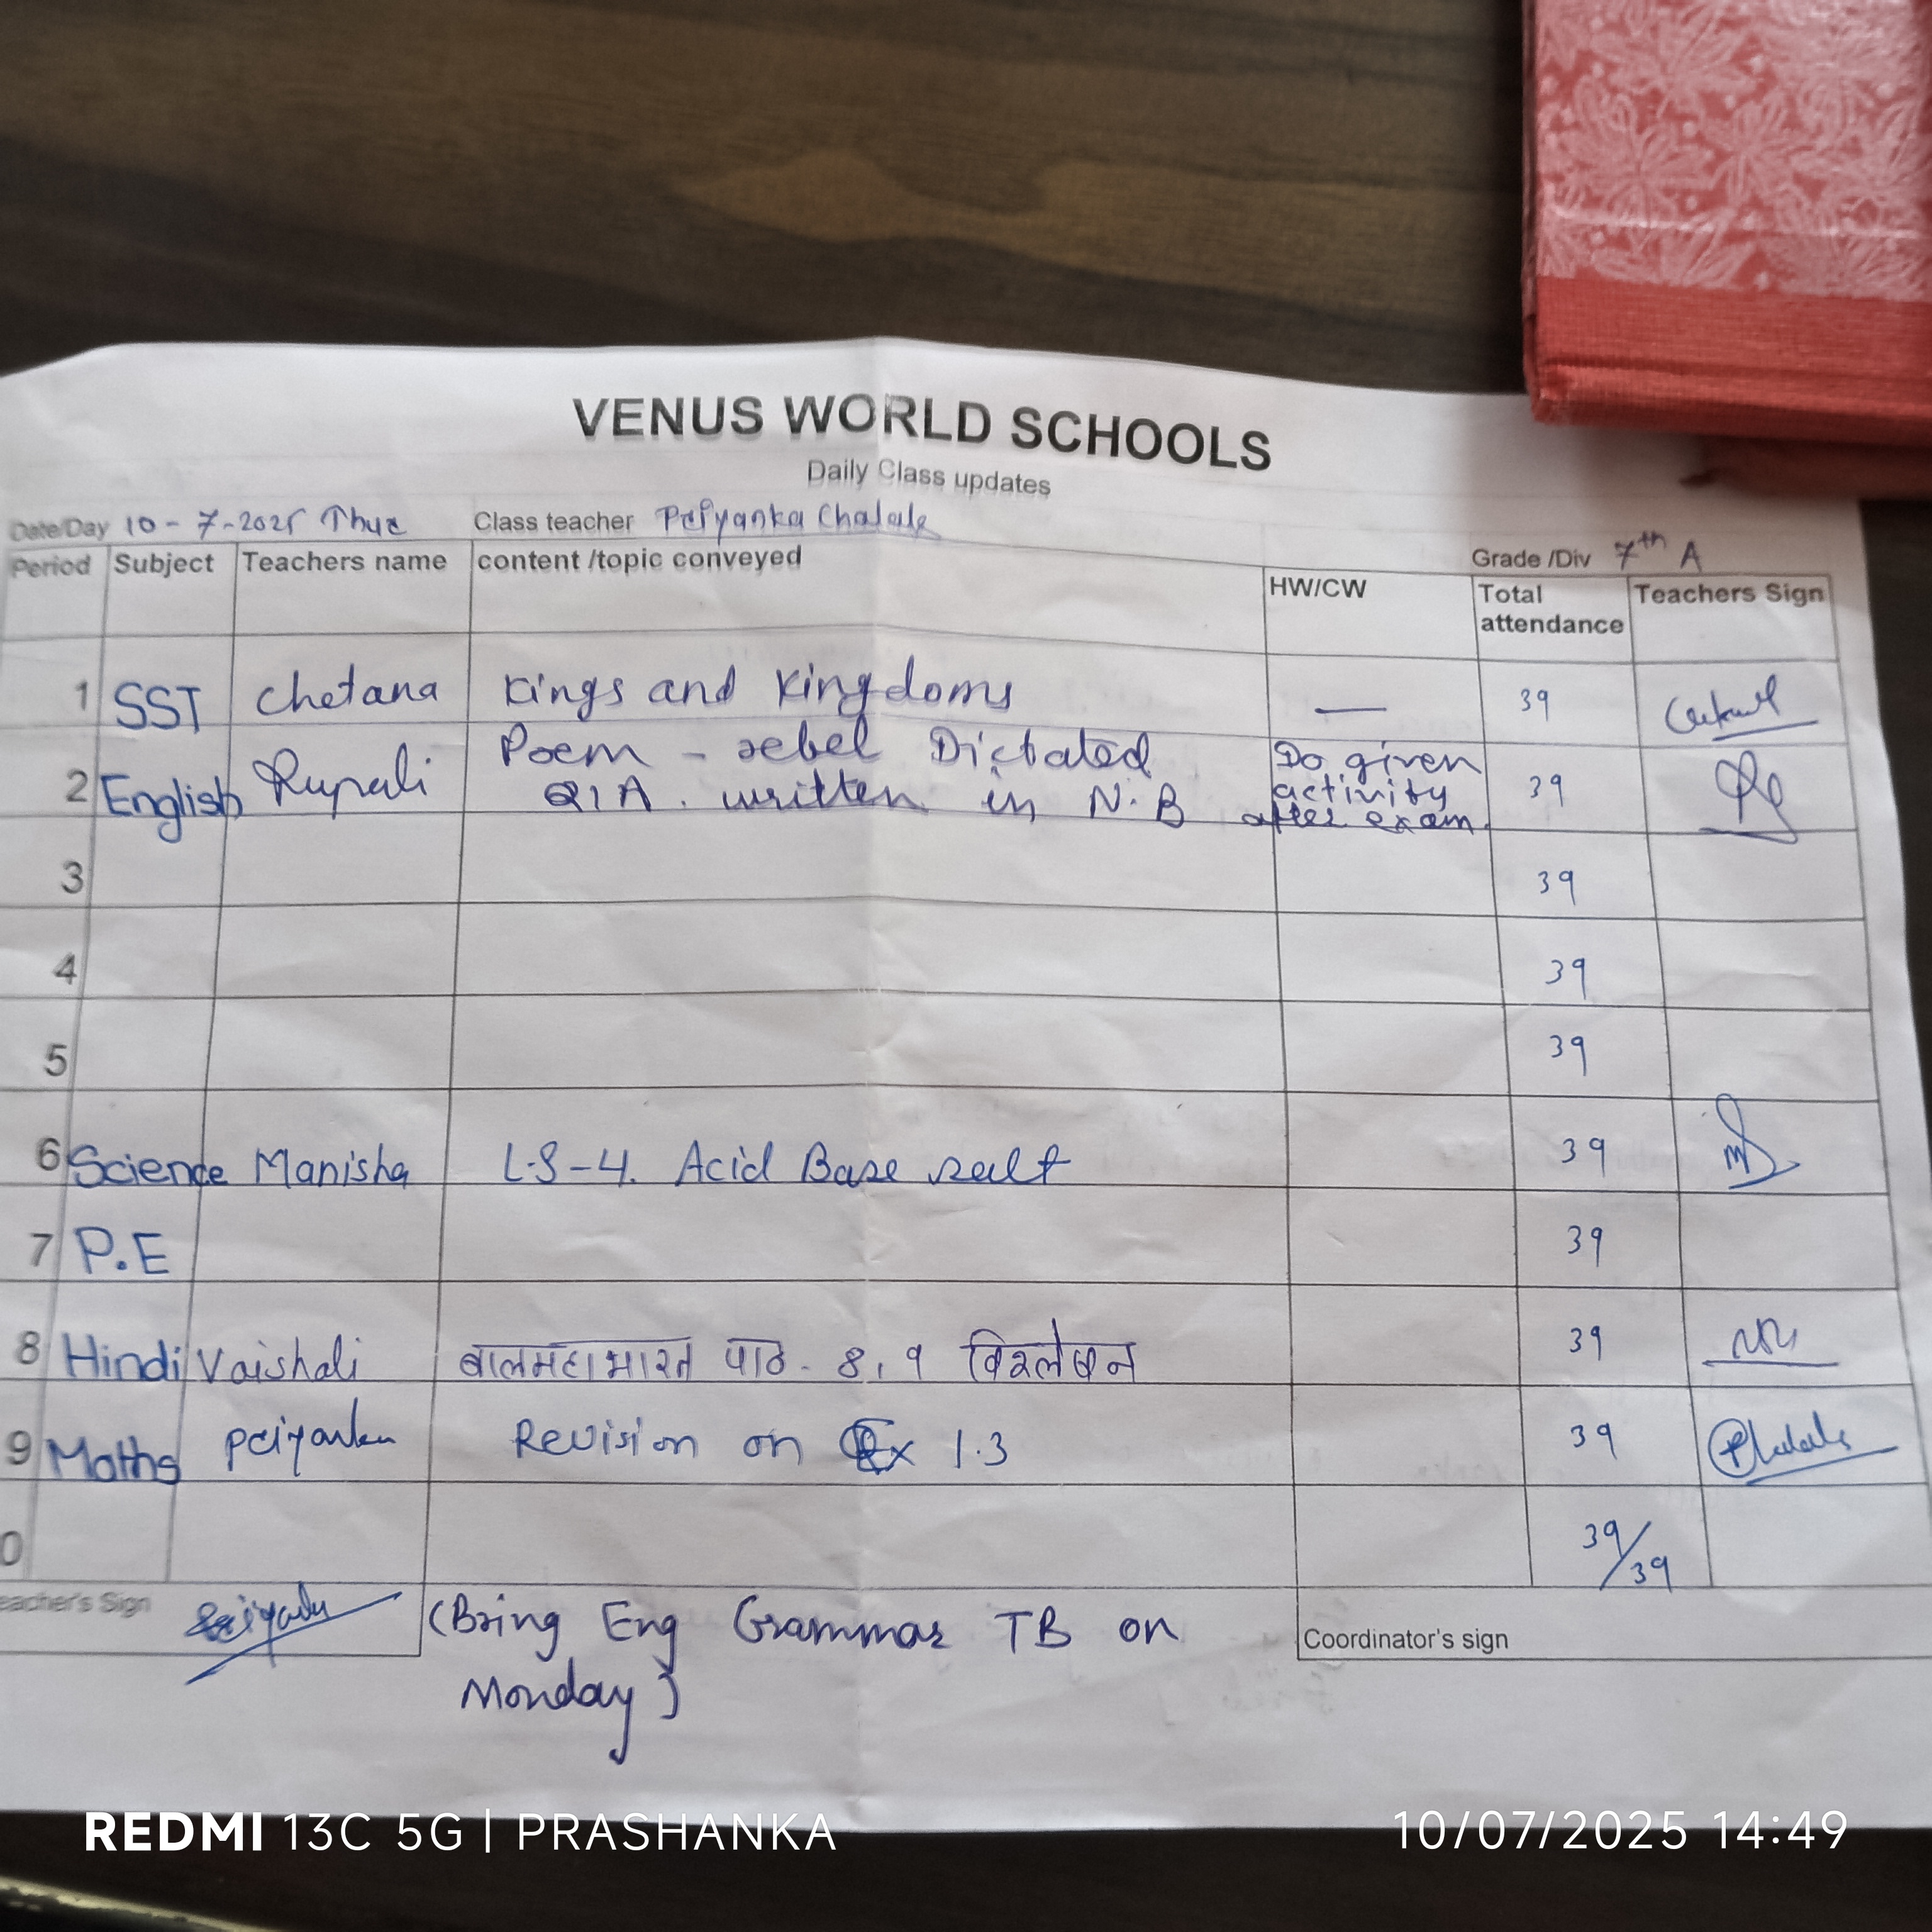 VENUS WORLD SCHOOLS
Daily Class updates
Date/Day 10-7-2025 Thur Class teacher Priyanka Chalak
Grade /Div 7th A
Period Subject Teachers name content /topic conveyed HW/CW Total attendance Teachers Sign
1 SST Chetana Kings and Kingdoms — 39
2 English Rupali Poem - rebel Dictated Q1A. written in N.B Do given activity after exam. 39
3 39
4 39
5 39
6 Science Manisha L.S-4. Acid Base salt 39
7 P.E 39
8 Hindi Vaishali बालमहाभारत पाठ- 8,9 विश्लेषन 39
9 Maths Priyanka Revision on Ex 1.3 39
0 39/39
eacher's Sign
(Bring Eng Grammar TB on
Monday)
Coordinator's sign
REDMI 13C 5G | PRASHANKA 10/07/2025 14:49